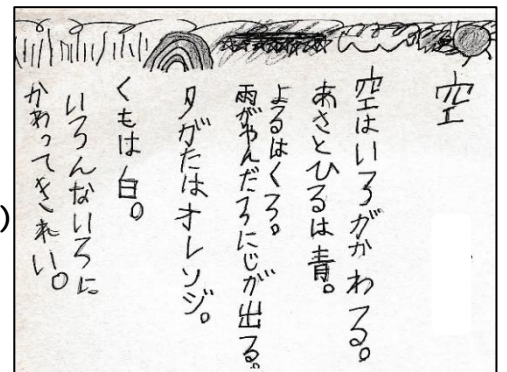 空
空はいろがかわる。
あさとひるは青。
よるはくろ。
雨がやんだらにじが出る。
夕がたはオレンジ。
くもは白。
いろんないろに
かわってきれい。
)